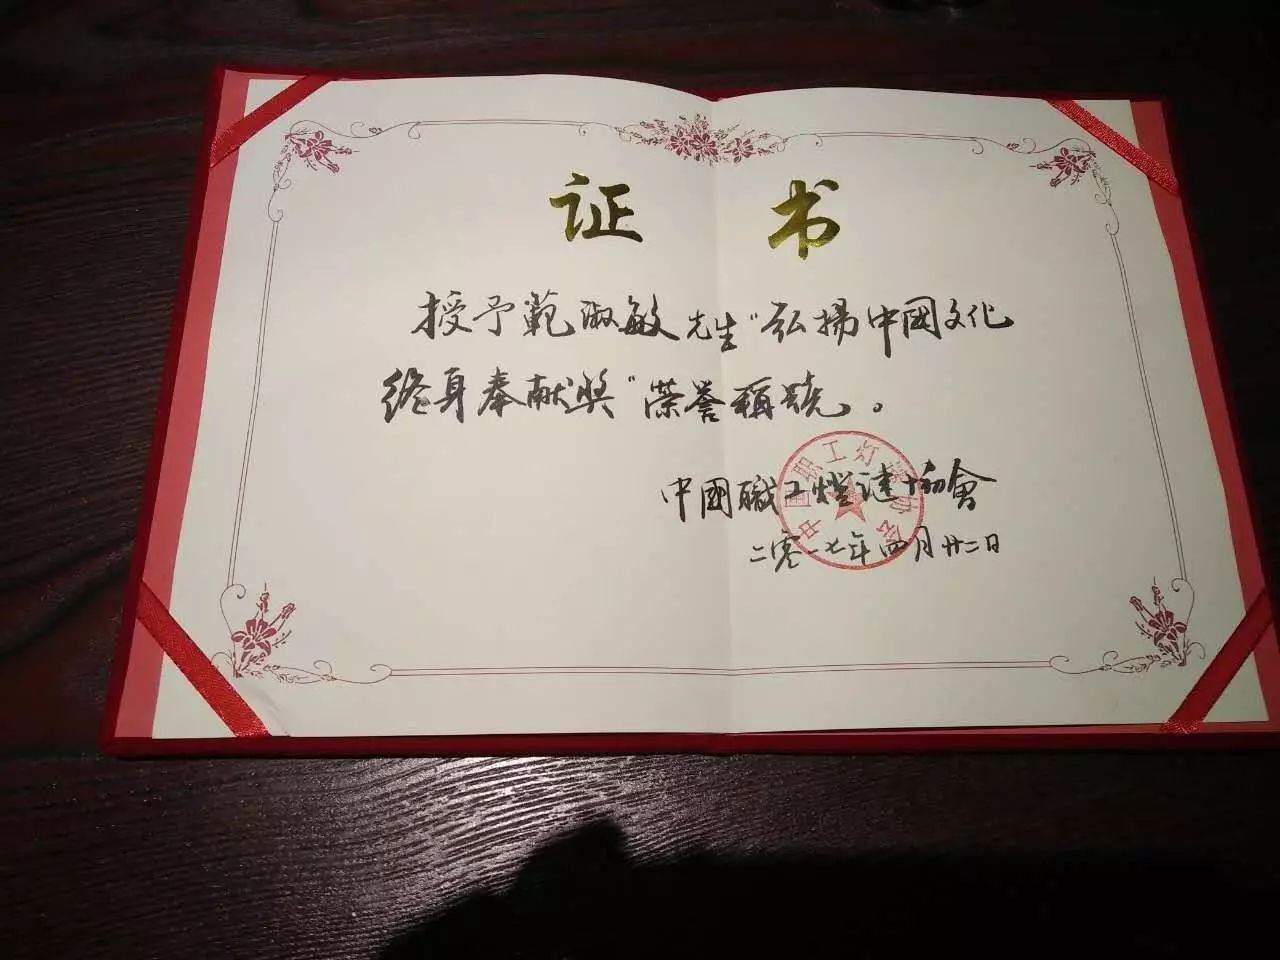 证书
授予範淑敏先生"弘揚中國文化
终身奉献奖"荣誉稱號。
中國職工燈謎協會
二零一七年四月廿二日
中国职工灯谜协会